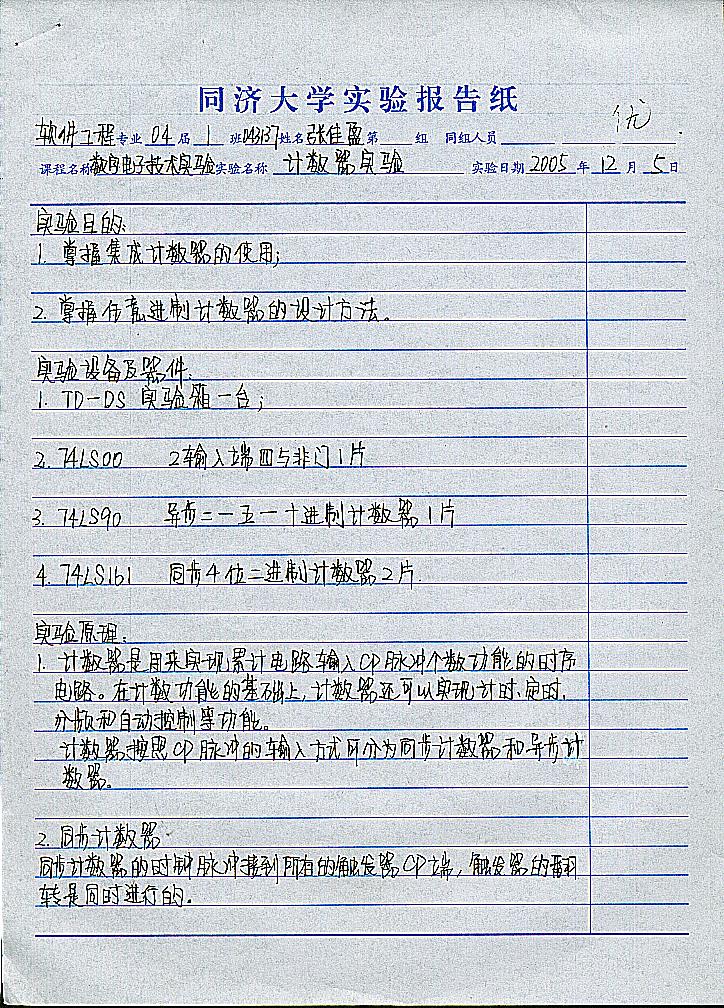 同济大学实验报告纸
优
软件工程专业 04 届 1 班043137姓名张佳盈第 组 同组人员
课程名称数字电子技术实验实验名称 计数器实验 实验日期2005年12月5日
实验目的:
1. 掌握集成计数器的使用;
2. 掌握任意进制计数器的设计方法。
实验设备及器件:
1. TD-DS 实验箱一台;
2. 74LS00 2输入端四与非门1片
3. 74LS90 异步二一五一十进制计数器1片
4. 74LS161 同步4位二进制计数器2片.
实验原理:
1. 计数器是用来实现累计电路输入CP脉冲个数功能的时序
电路。在计数功能的基础上,计数器还可以实现计时、定时、
分频和自动控制等功能。
计数器按照CP脉冲的输入方式可分为同步计数器和异步计
数器。
2. 同步计数器
同步计数器的时钟脉冲接到所有的触发器CP端,触发器的翻
转是同时进行的。